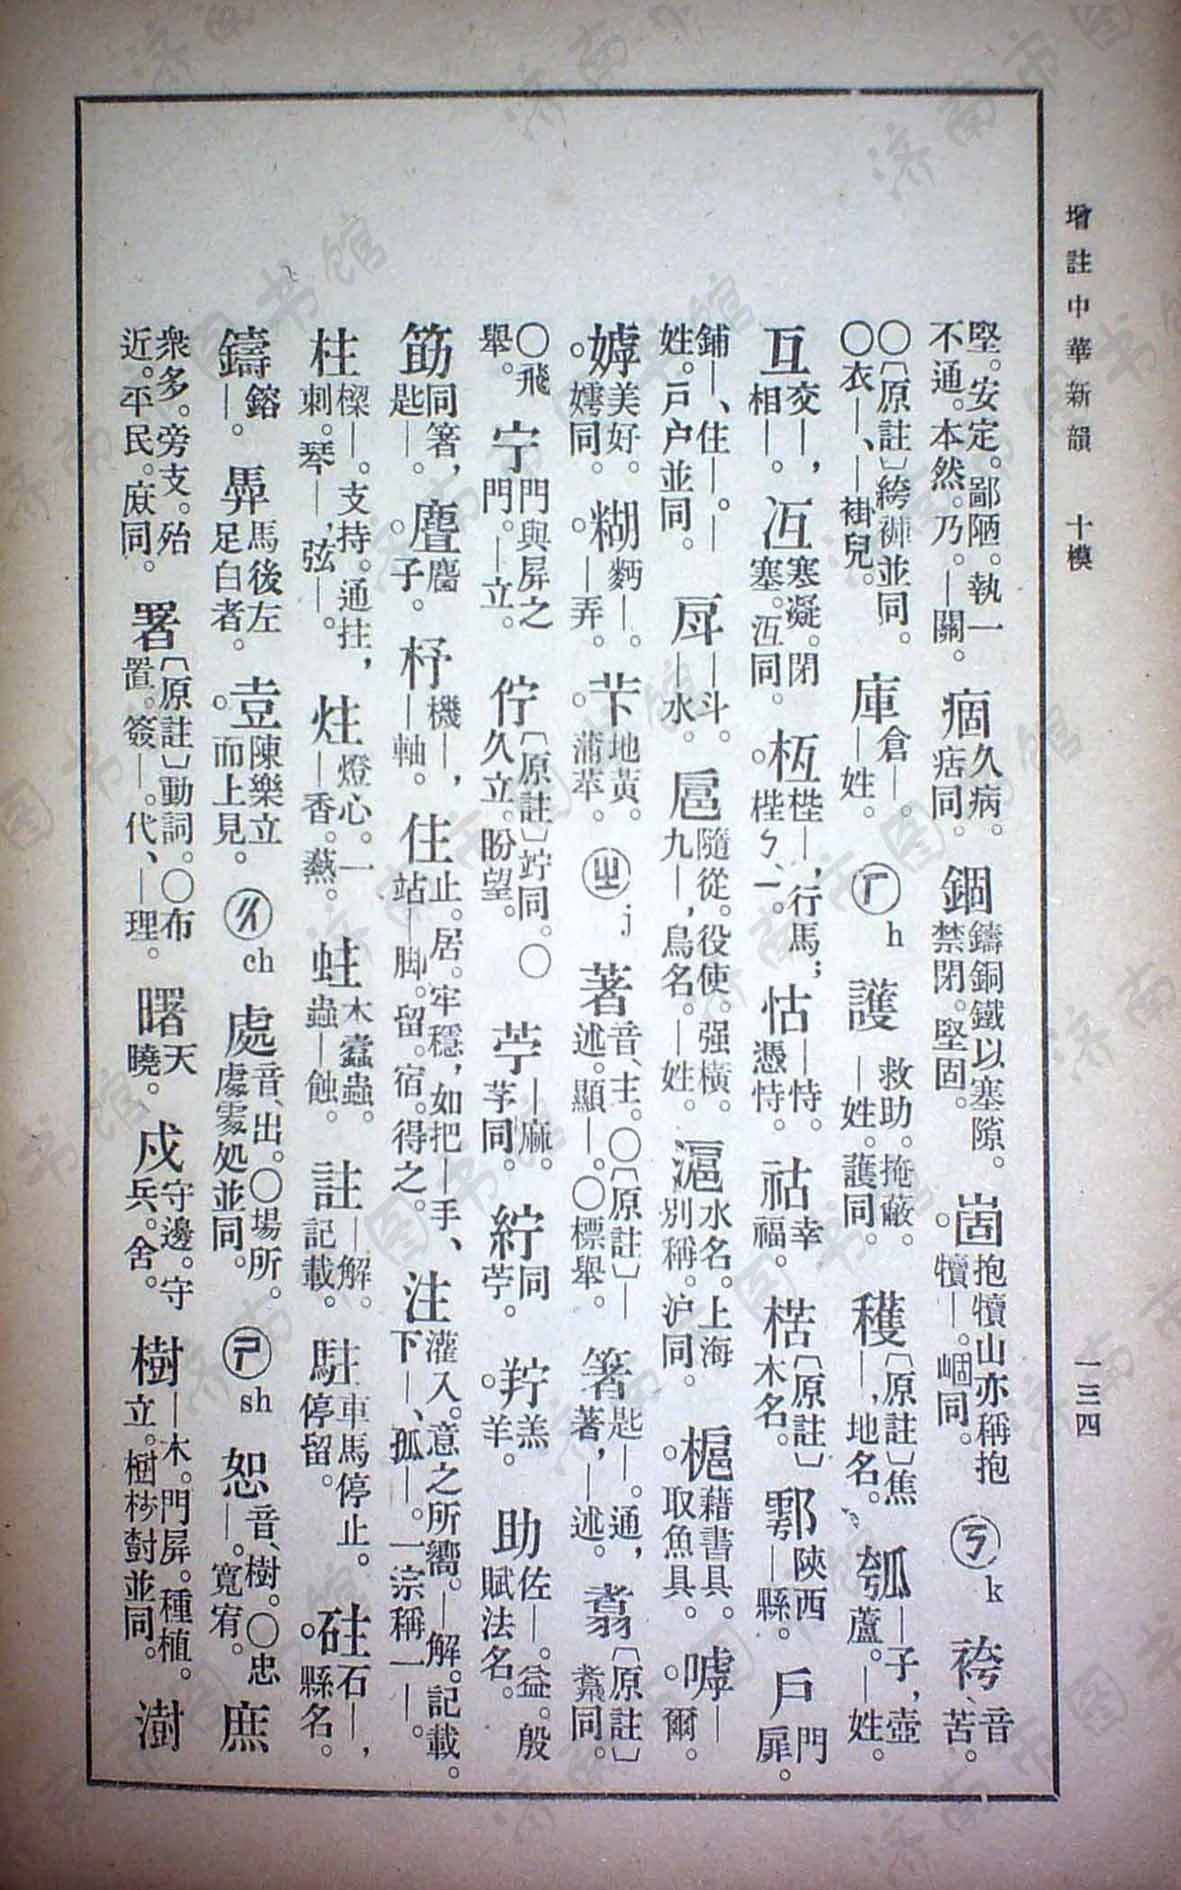 增註中華新韻　十模　一三四
堅。安定。鄙陋。執一不通。本然。乃。—關。　痼久病。㽽同。　錮鑄銅鐵以塞隙。禁閉。堅固。　崮抱犢山亦稱抱犢—。崓同。　ㄎk　袴音、苦。
○〔原註〕絝褲並同。○衣—、—褂兒。　庫倉—。—姓。　ㄏh　護救助。掩蔽。—姓。護同。　穫〔原註〕焦—，地名。　瓠—子，壺蘆。—姓。
互交—，相—。　冱寒凝。閉塞。沍同。　枑梐—，行馬；梐ㄅㄧ。　怙—恃。憑恃。　祜幸福。　楛〔原註〕木名。　鄠陝西—縣。　戶門扉。
鋪—、住—。—姓。戸户並同。　戽—斗。—水。　扈隨從。役使。强橫。九—，鳥名。—姓。　滬水名。上海別稱。沪同。　槴藉書具。取魚具。　嘑—爾。
嫭美好。嫮同。　糊麪—。—弄。　芐地黃。蒲苹。　ㄓj　著音、主。○〔原註〕—述。顯—。○標舉。　箸匙—。通著，—述。　翥〔原註〕䬡同。
○飛舉。　宁門與屏之門。—立。　佇〔原註〕竚同。○久立。盼望。　苧—麻。芓同。　紵同苧。　羜羔羊。　助佐—。益。殷賦法名。
筯同箸，匙—。　麆麕子。　杼機—，—軸。　住止。居。牢穩，如把—手、站—脚。留。宿。得之。　注灌入。意之所嚮。—解。記載。下—、孤—。一宗稱一—。
柱樑—。支持。通拄，刺。琴—，弦—。　炷燈心。一—香。爇。　蛀木蠹蟲。蟲—蝕。　註—解。記載。　駐車馬停止。停留。　砫石—，縣名。
鑄鎔—。　馵馬後左足白者。　壴陳樂立而上見。　ㄔch　處音、出。○場所。處䖏処並同。　ㄕsh　恕音、樹。○忠—。寬宥。　庶
衆多。旁支。殆近。平民。庻同。　署〔原註〕動詞。○布置。簽—。代、—理。　曙天曉。　戍守邊。守兵。舍。　樹—木。門屏。種植。立。𣗳㭐尌並同。　澍